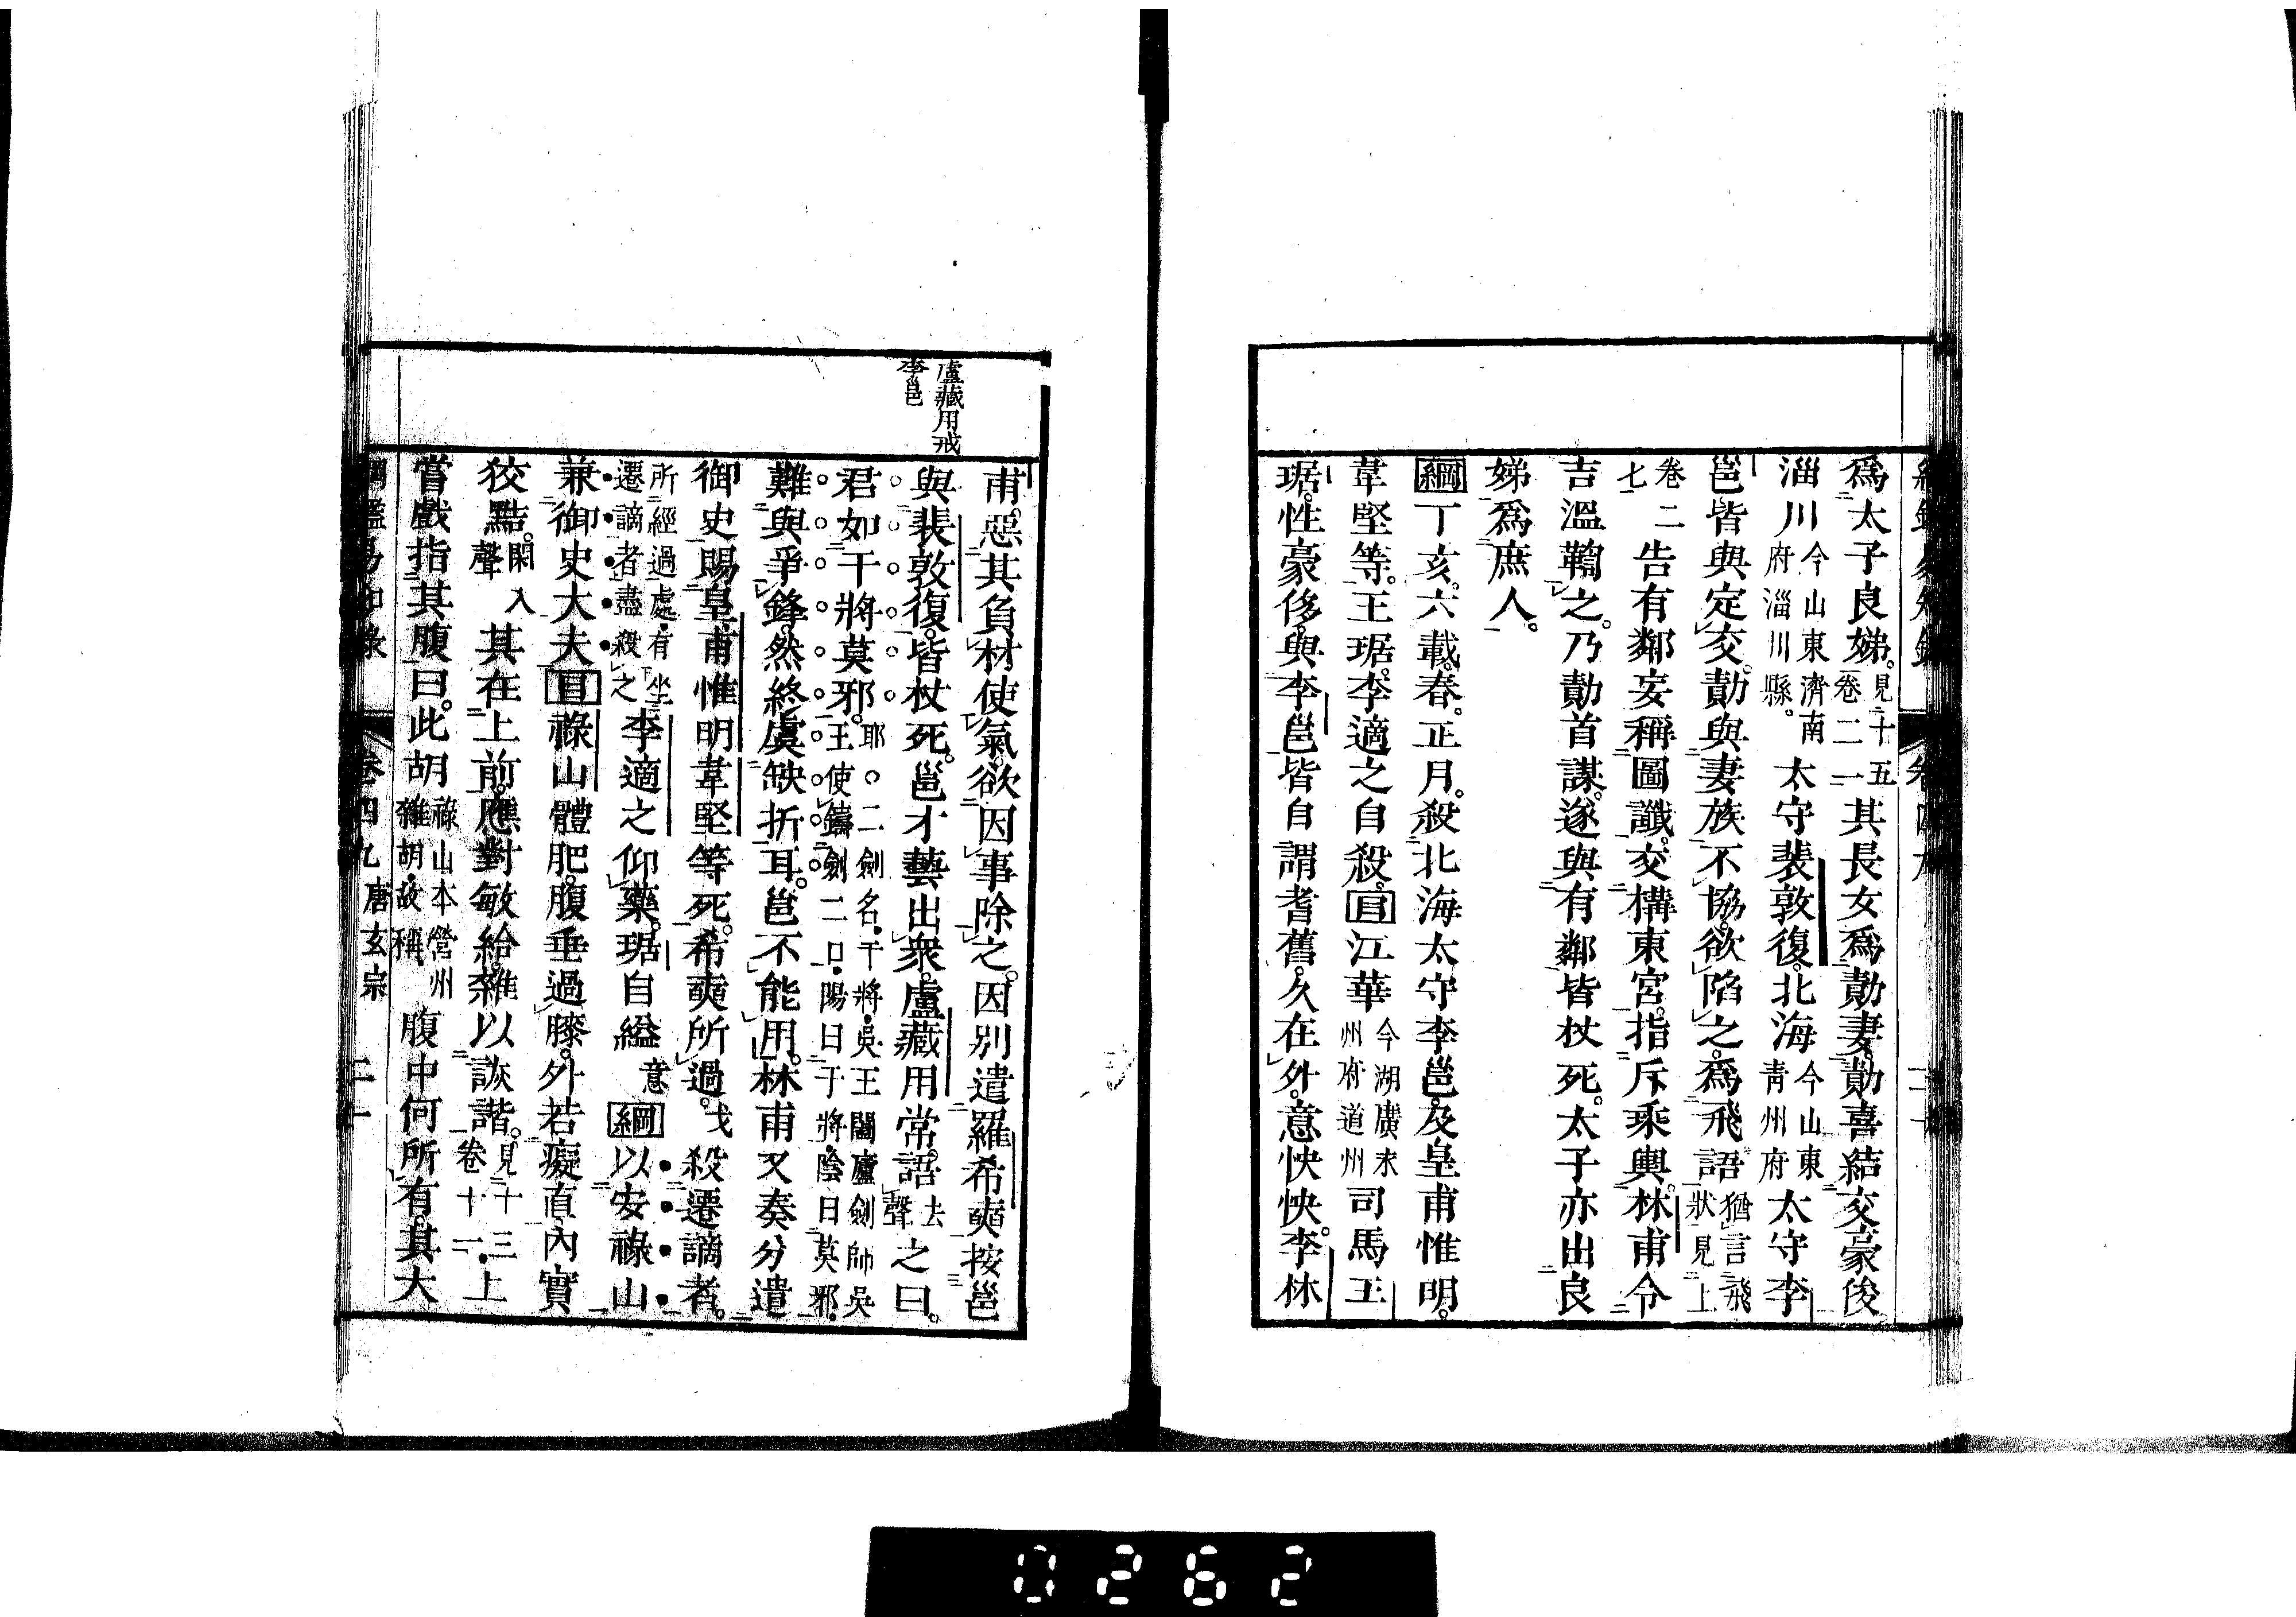 爲太子良娣。見二十五卷二一其長女爲勣妻。勣喜結交豪俊。
淄川今山東濟南府淄川縣。太守裴敦復。北海今山東青州府太守李
邕。皆與定交。勣與妻族不協。欲陷之。爲飛語猶言飛狀見上
卷二七告有鄰妄稱圖讖。交構東宮。指斥乘輿。林甫令
吉溫鞫之。乃勣首謀。遂與有鄰皆杖死。太子亦出良
娣爲庶人。
綱丁亥。六載。春。正月。殺北海太守李邕。及皇甫惟明。
韋堅等。王琚。李適之自殺。目江華今湖廣永州府道州司馬王
琚。性豪侈。與李邕皆自謂耆舊。久在外。意怏怏。李林
盧藏用戒
李邕
甫。惡其負材使氣。欲因事除之。因別遣羅希奭按邕
與裴敦復。皆杖死。邕才藝出衆。盧藏用常語去聲之曰。
君如干將莫邪。耶。二劍名。干將。吳王闔廬劍師吳王使鑄劍二口。陽曰干將。陰曰莫邪。
難與爭鋒。然終虞缺折耳。邕不能用。林甫又奏分遣
御史賜皇甫惟明韋堅等死。希奭所過。戈殺遷謫者。
所經過處。有坐遷謫者盡殺之李適之仰藥。琚自縊意綱以安祿山
兼御史大夫目祿山體肥。腹垂過膝。外若癡直。內實
狡黠。閑入聲其在上前。應對敏給。雜以詼諧。見十三卷十二。上
嘗戲指其腹曰。此胡祿山本營州雜胡。故稱腹中何所有。其大
綱鑑易知錄 卷四九 唐玄宗 二十